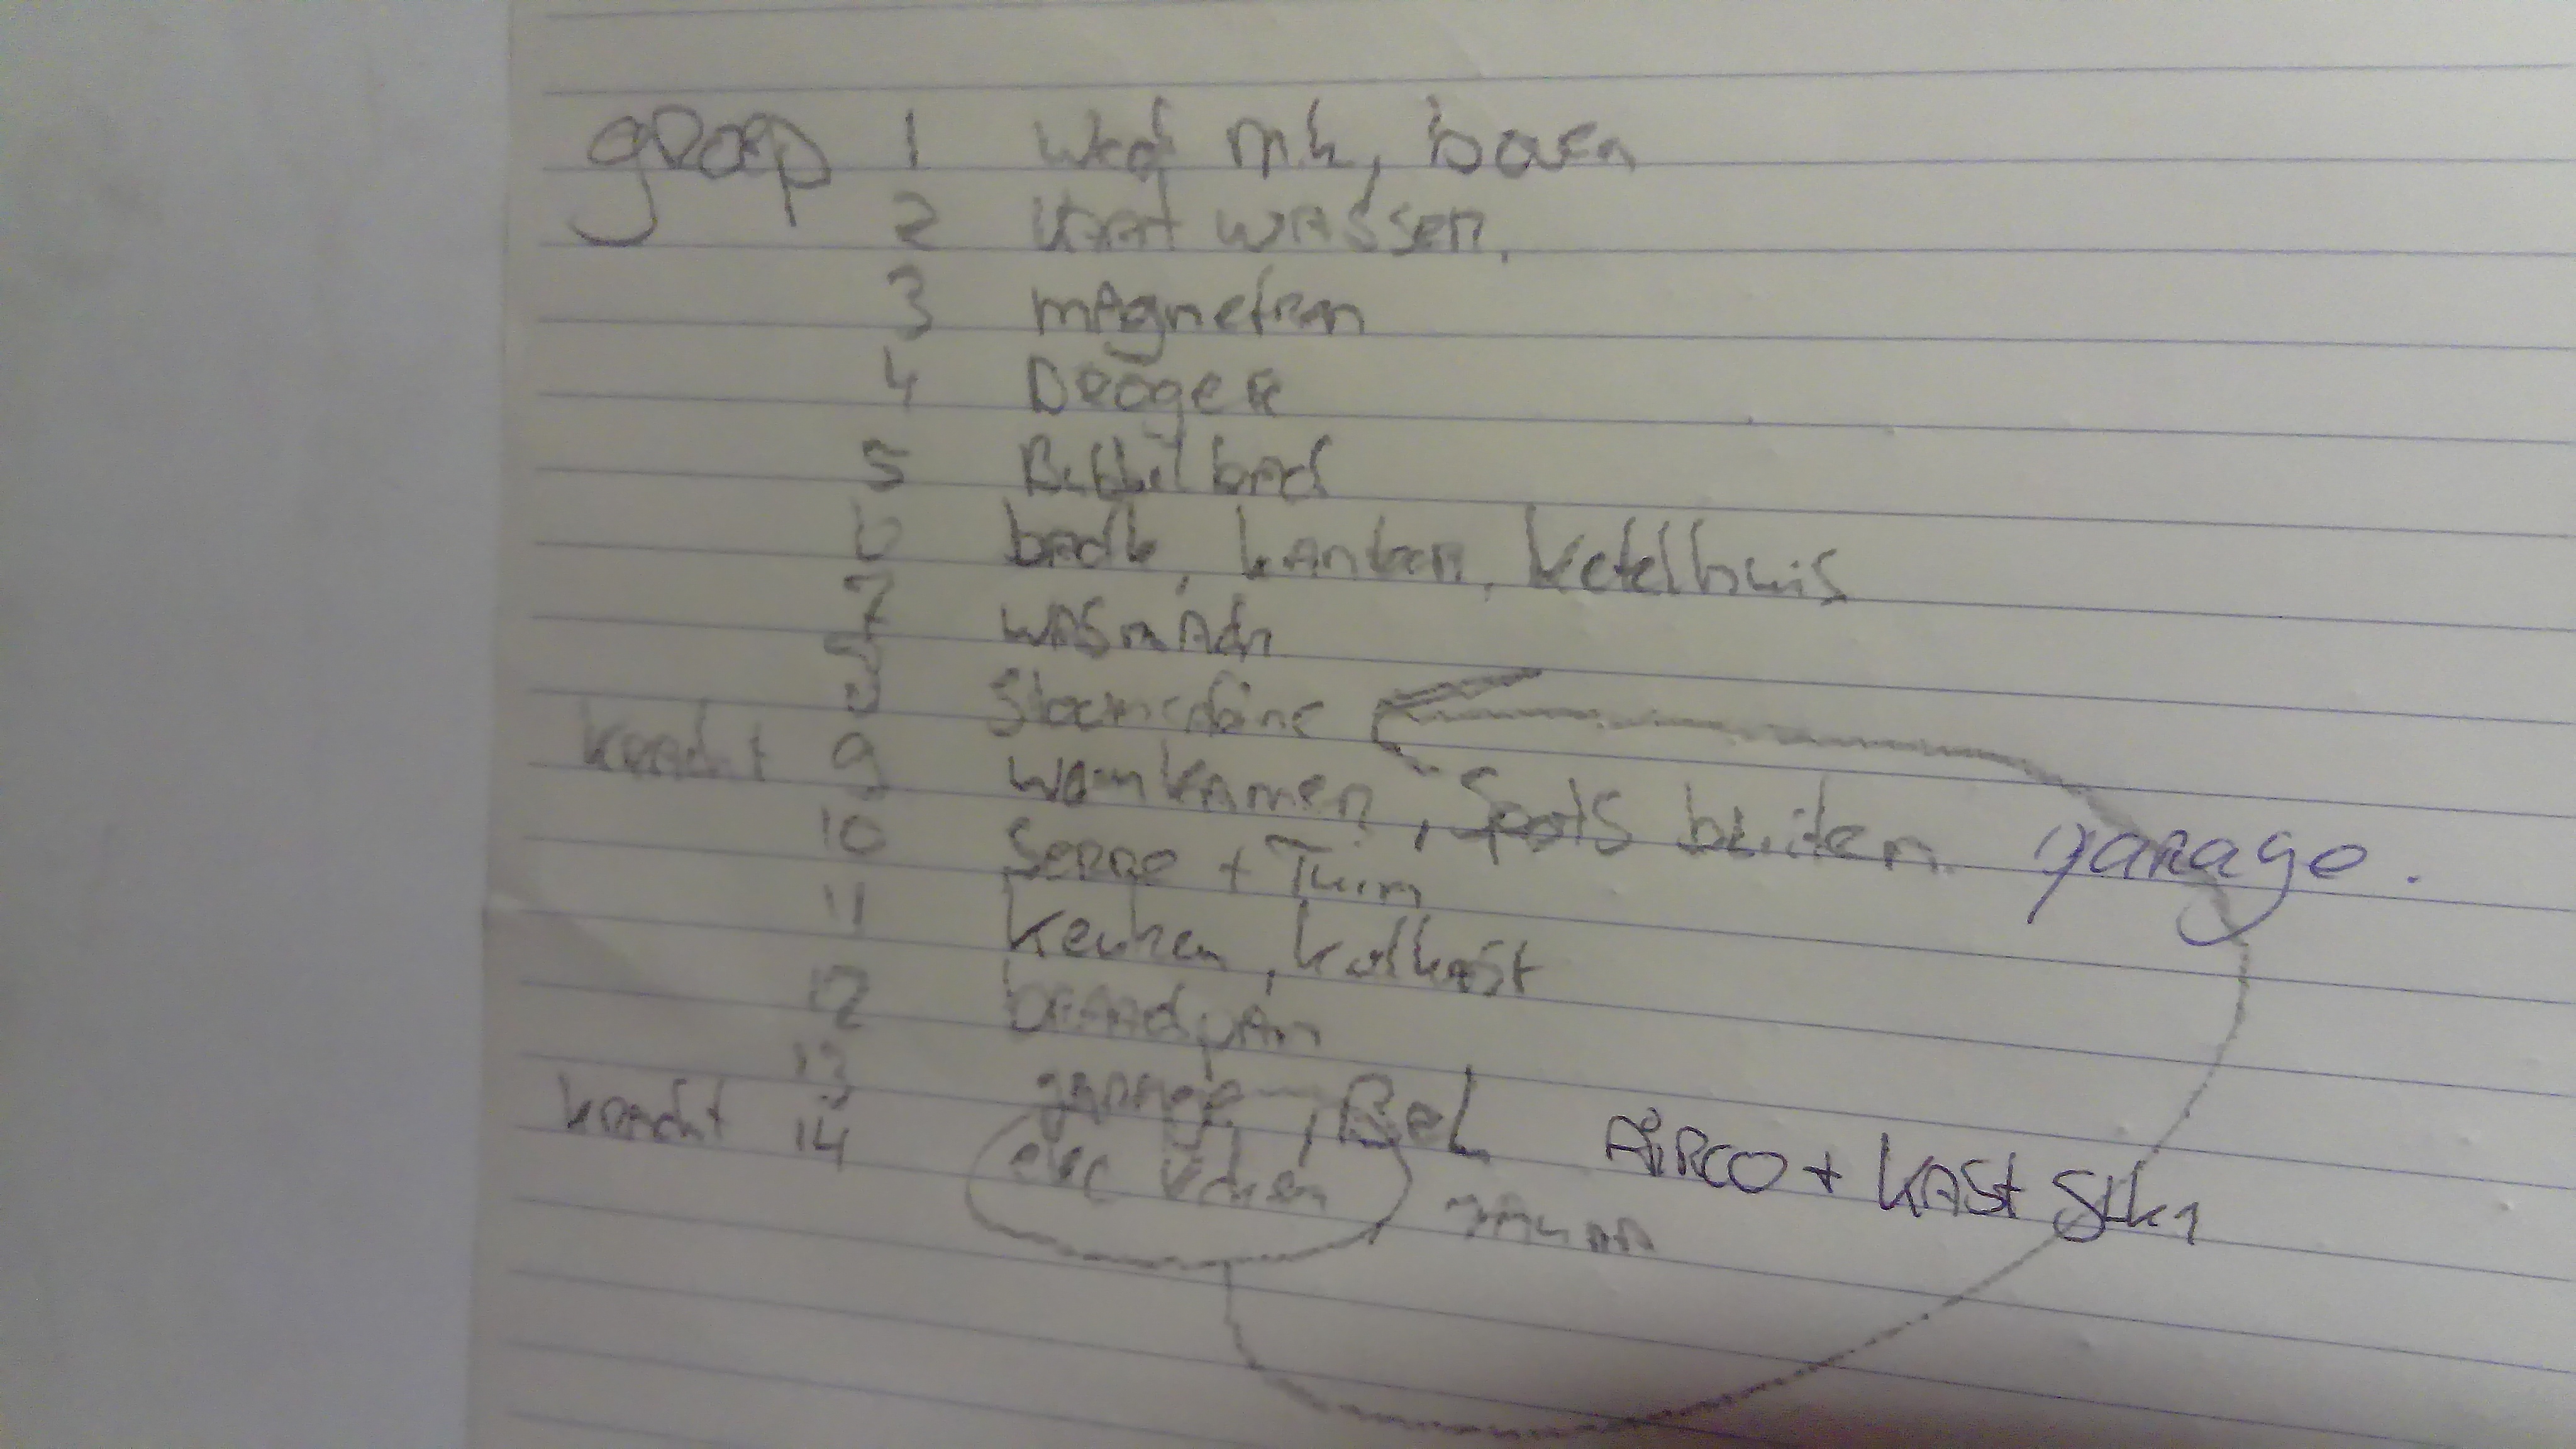 groep 1 boven
2 VAAT WASSEN.
3 mAgnetron
4 DROgeR
5 BubbelbAd
6 badk, kantoor, Ketelhuis
7 WASmAch
8 Stoomcabine
kracht 9 woonkamer, Spots buiten garage.
10 Serre + Tuin
11 Keuken, koelkast
12
13 garage, Bel AiRCO + KASt SLk1
kracht 14 elec koken